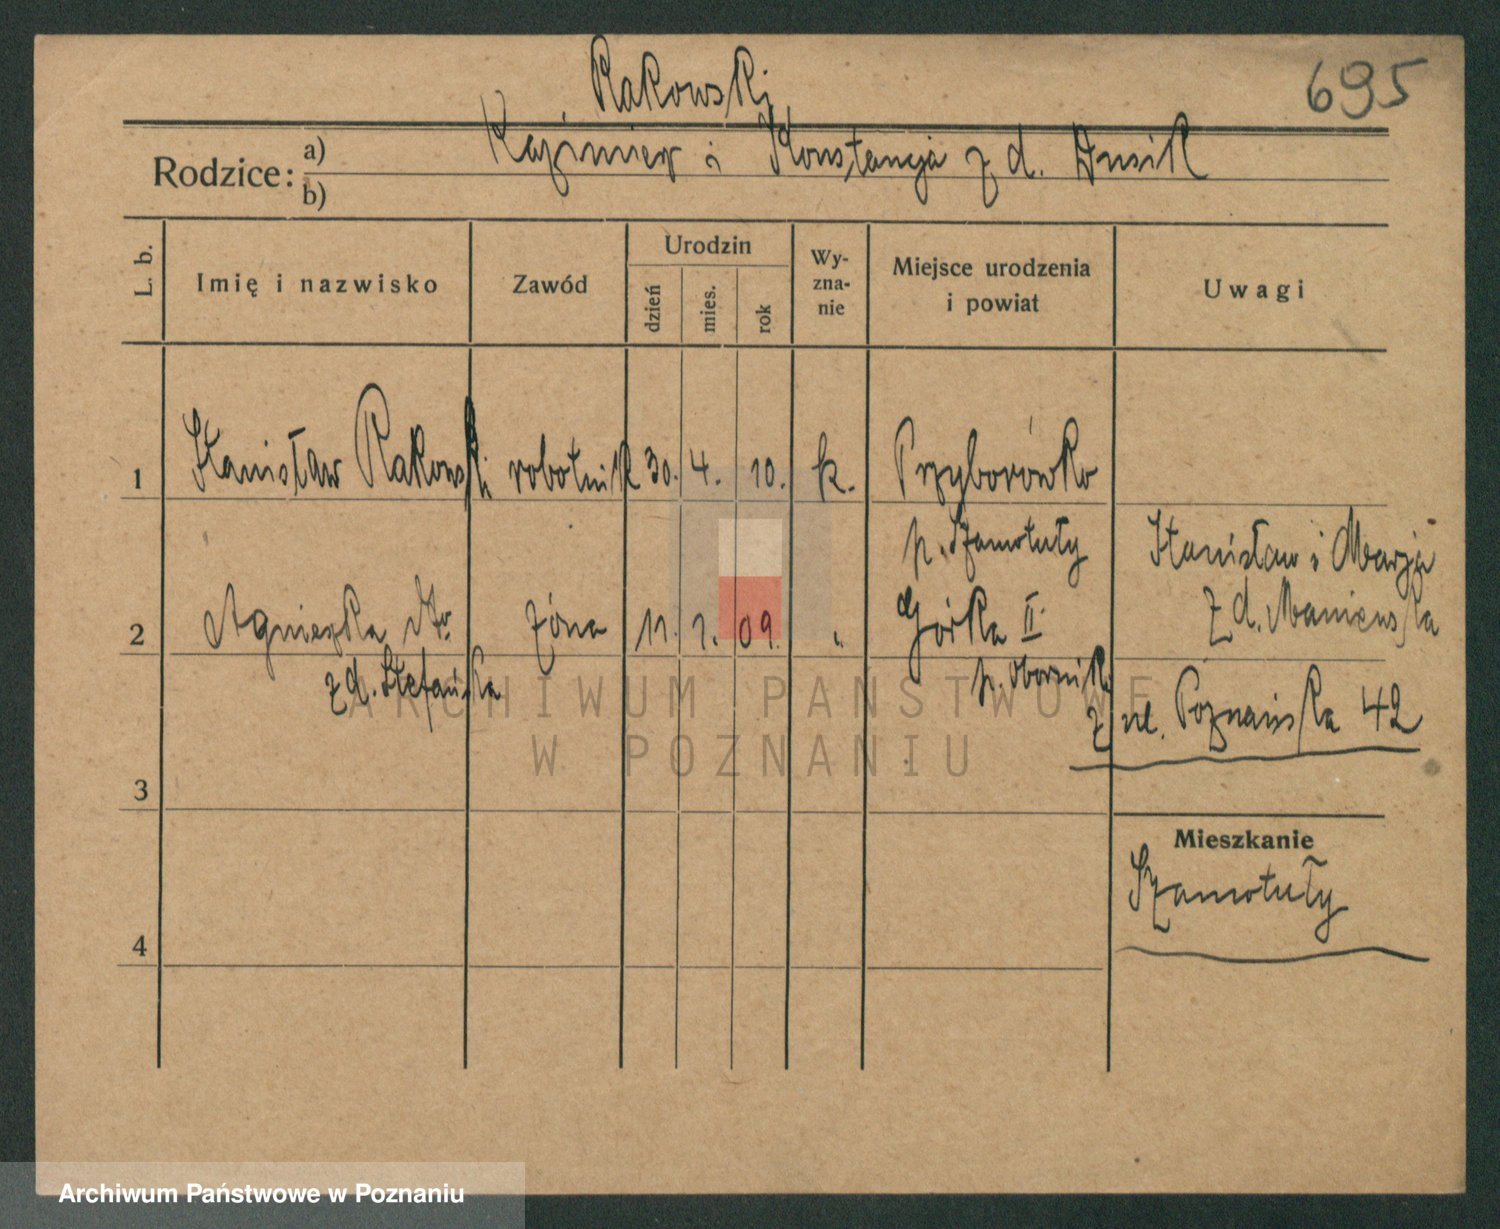 695
Rakowski
Rodzice: a) Kazimierz i Konstancja z d. Dusik
b)
L. b. Imię i nazwisko Zawód Urodzin dzień mies. rok Wy-zna-nie Miejsce urodzenia i powiat Uwagi
1 Stanisław Rakowski robotnik 30. 4. 10. k. Przyborówko
p. Szamotuły Stanisław i Marja
2 Agnieszka żona 11. 1. 09. " Górka II z d.
z d. Stefańska p. Obornik
z ul. Poznańska 42
3
Mieszkanie
Szamotuły
4
ARCHIWUM PAŃSTWOWE
W POZNANIU
Archiwum Państwowe w Poznaniu